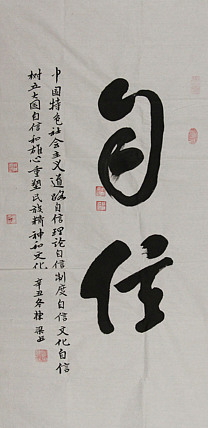 自信
中国特色社会主义道路自信理论自信制度自信文化自信
树立大国自信和雄心重塑民族精神和文化 辛丑冬